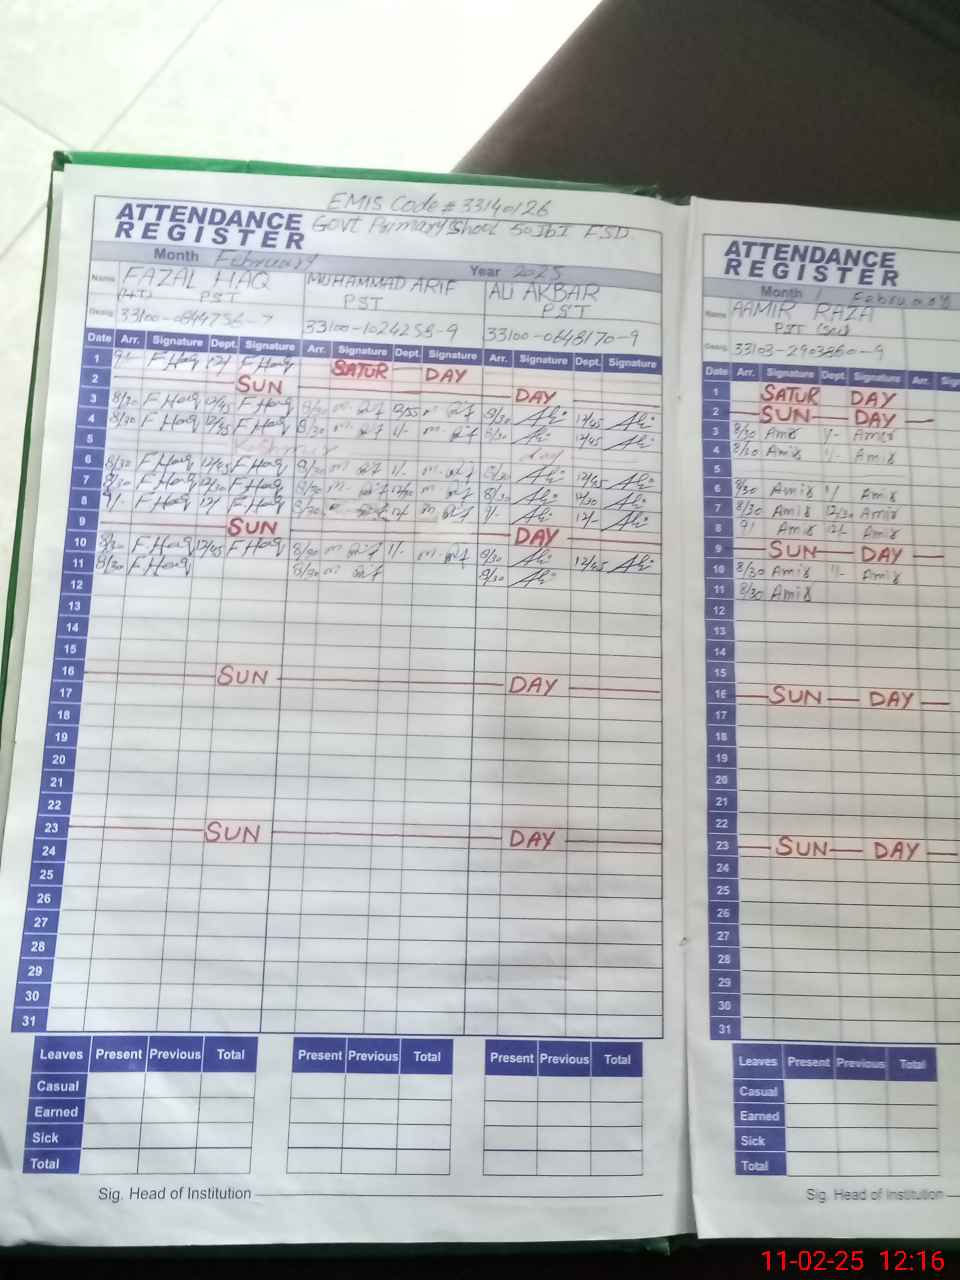 EMIS Code # 33140126
ATTENDANCE REGISTER Govt Primary School 50 JbI FSD
Month February Year 2025
Name FAZAL HAQ MUHAMMAD ARIF ALI AKBAR
(HT) PST PST PST
Desig 33100-0844756-7 33100-1024258-9 33100-0648170-9
Date Arr. Signature Dept. Signature Arr. Signature Dept. Signature Arr. Signature Dept. Signature
1 9/- F Haq 12/ F Haq SATUR DAY
2 SUN DAY
3 8/30 F Haq 12/45 F Haq 8/30 m. Arif 12/55 m Arif 8/30 Ali 12/45 Ali
4 8/30 F Haq 12/45 F Haq 8/30 m. Arif 1/- m. Arif 8/30 Ali 12/45 Ali
5
6 8/30 F Haq 12/45 F Haq 8/30 m. Arif 1/- m. Arif 8/30 Ali 12/45 Ali
7 8/30 F Haq 12/30 F Haq 8/30 m. Arif 12/30 m Arif 8/30 Ali Ali
8 9/- F Haq 12/ F Haq 12/- m Arif 9/- Ali 12/- Ali
9 SUN DAY
10 8/30 F Haq 12/45 F Haq 8/30 m Arif 1/- m. Arif 8/30 Ali 12/45 Ali
11 8/30 F Haq 8/30 m Arif 8/30 Ali
12
13
14
15
16 SUN DAY
17
18
19
20
21
22
23 SUN DAY
24
25
26
27
28
29
30
31
Leaves Present Previous Total Present Previous Total Present Previous Total
Casual
Earned
Sick
Total
Sig. Head of Institution
ATTENDANCE REGISTER
Month February
Name AAMIR RAZA
PST
Desig 33103-2903860-9
Date Arr. Signature Dept. Signature Arr. Sign
1 SATUR DAY
2 SUN DAY
3 8/30 Amir 1/- Amir
4 8/30 Amir 1/- Amir
5
6 8/30 Amir 1/ Amir
7 8/30 Amir 12/30 Amir
8 9/ Amir 12/- Amir
9 SUN DAY
10 8/30 Amir 1/- Amir
11 8/30 Amir
12
13
14
15
16 SUN DAY
17
18
19
20
21
22
23 SUN DAY
24
25
26
27
28
29
30
31
Leaves Present Previous Total
Casual
Earned
Sick
Total
Sig. Head of Institution
11-02-25 12:16